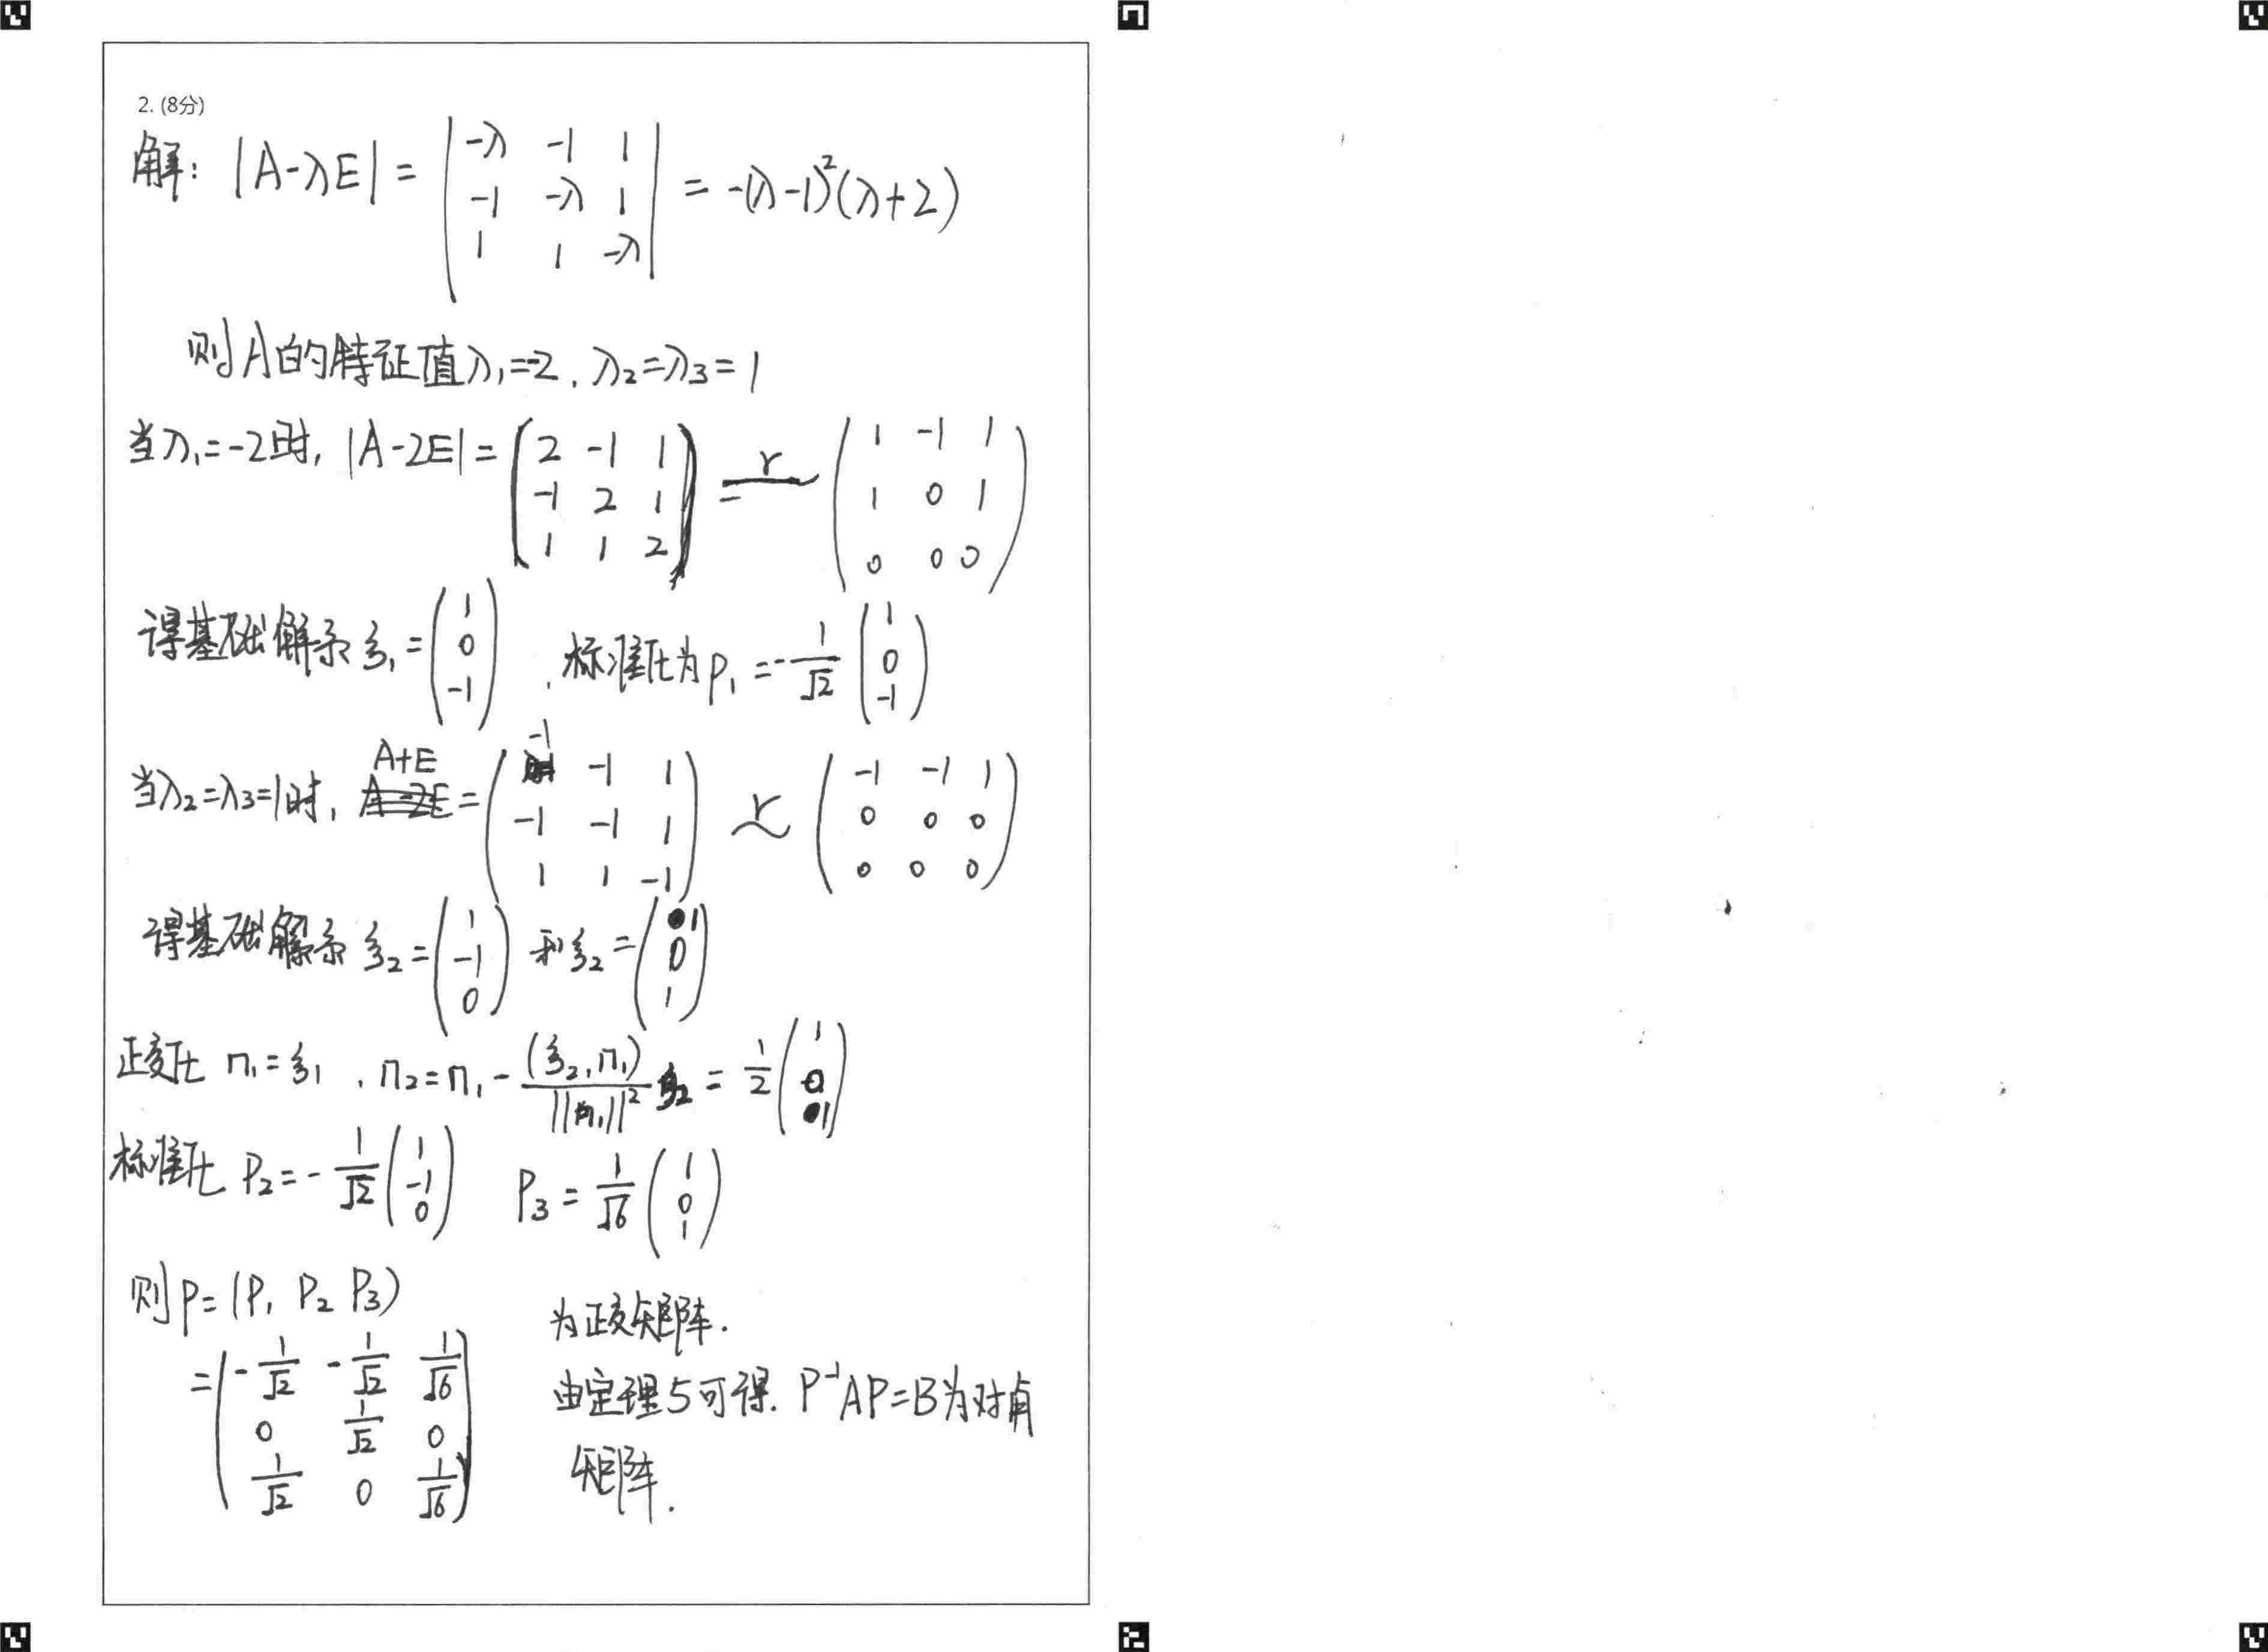 2. (8分)
解: |A-λE| = | -λ -1 1 | = -(λ-1)²(λ+2)
-1 -λ 1
1 1 -λ
则A的特征值λ₁=-2, λ₂=λ₃=1
当λ₁=-2时, |A-2E| = ( 2 -1 1 ) r ( 1 -1 1 )
-1 2 1 1 0 1
1 1 2 0 0 0
得基础解系 ξ₁ = (1 0 -1), 标准化为 p₁ = -1/√2 (1 0 -1)
当λ₂=λ₃=1时, A+E = ( -1 -1 1 ) r~ ( -1 -1 1 )
-1 -1 1 0 0 0
1 1 -1 0 0 0
得基础解系 ξ₂ = (1 -1 0) 和 ξ₂ = (1 0 1)
正交化 η₁=ξ₁, η₂=η₁- (ξ₂,η₁)/||η₁||² ξ₂ = 1/2 (1 0 1)
标准化 P₂ = -1/√2 (1 -1 0) P₃ = 1/√6 (1 0 1)
则P=(P₁ P₂ P₃)
= ( -1/√2 -1/√2 1/√6 )
0 1/√2 0
1/√2 0 1/√6
为正交矩阵.
由定理5可得. P⁻¹AP=B为对角
矩阵.